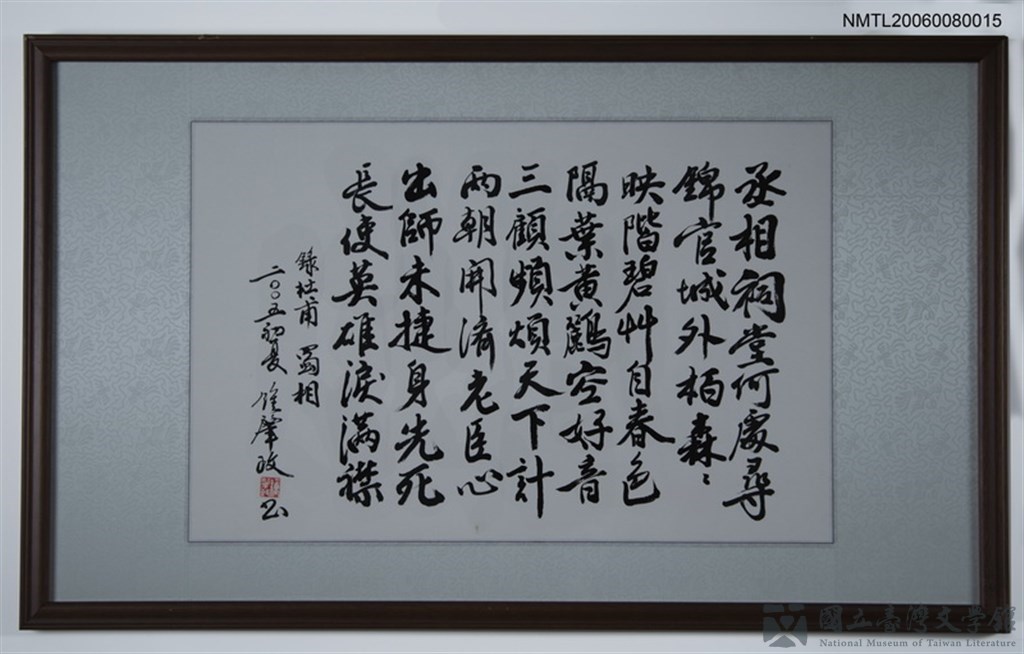 NMTL20060080015
丞相祠堂何處尋
錦官城外柏森〻
映階碧艸自春色
隔葉黃鸝空好音
三顧頻煩天下計
兩朝開濟老臣心
出師未捷身先死
長使英雄淚滿襟
錄杜甫 蜀相
二〇〇五初夏 鍾肇政
國立臺灣文學館
National Museum of Taiwan Literature